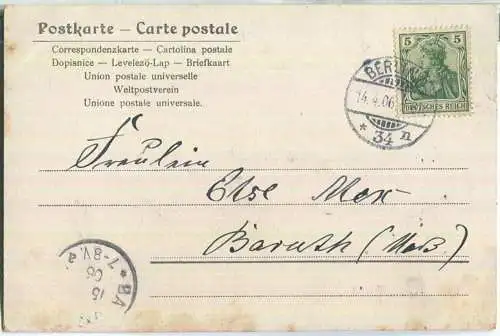 Postkarte – Carte postale
Correspondenzkarte – Cartolina postale
Dopisnice – Levelező-Lap – Briefkaart
Union postale universelle
Weltpostverein
Unione postale universale.
5 5
DEUTSCHES REICH
BERLIN
14.4.06.
* 34 n
Fräulein
Else Max
Baruth (Mark)
7-8V.
15
06